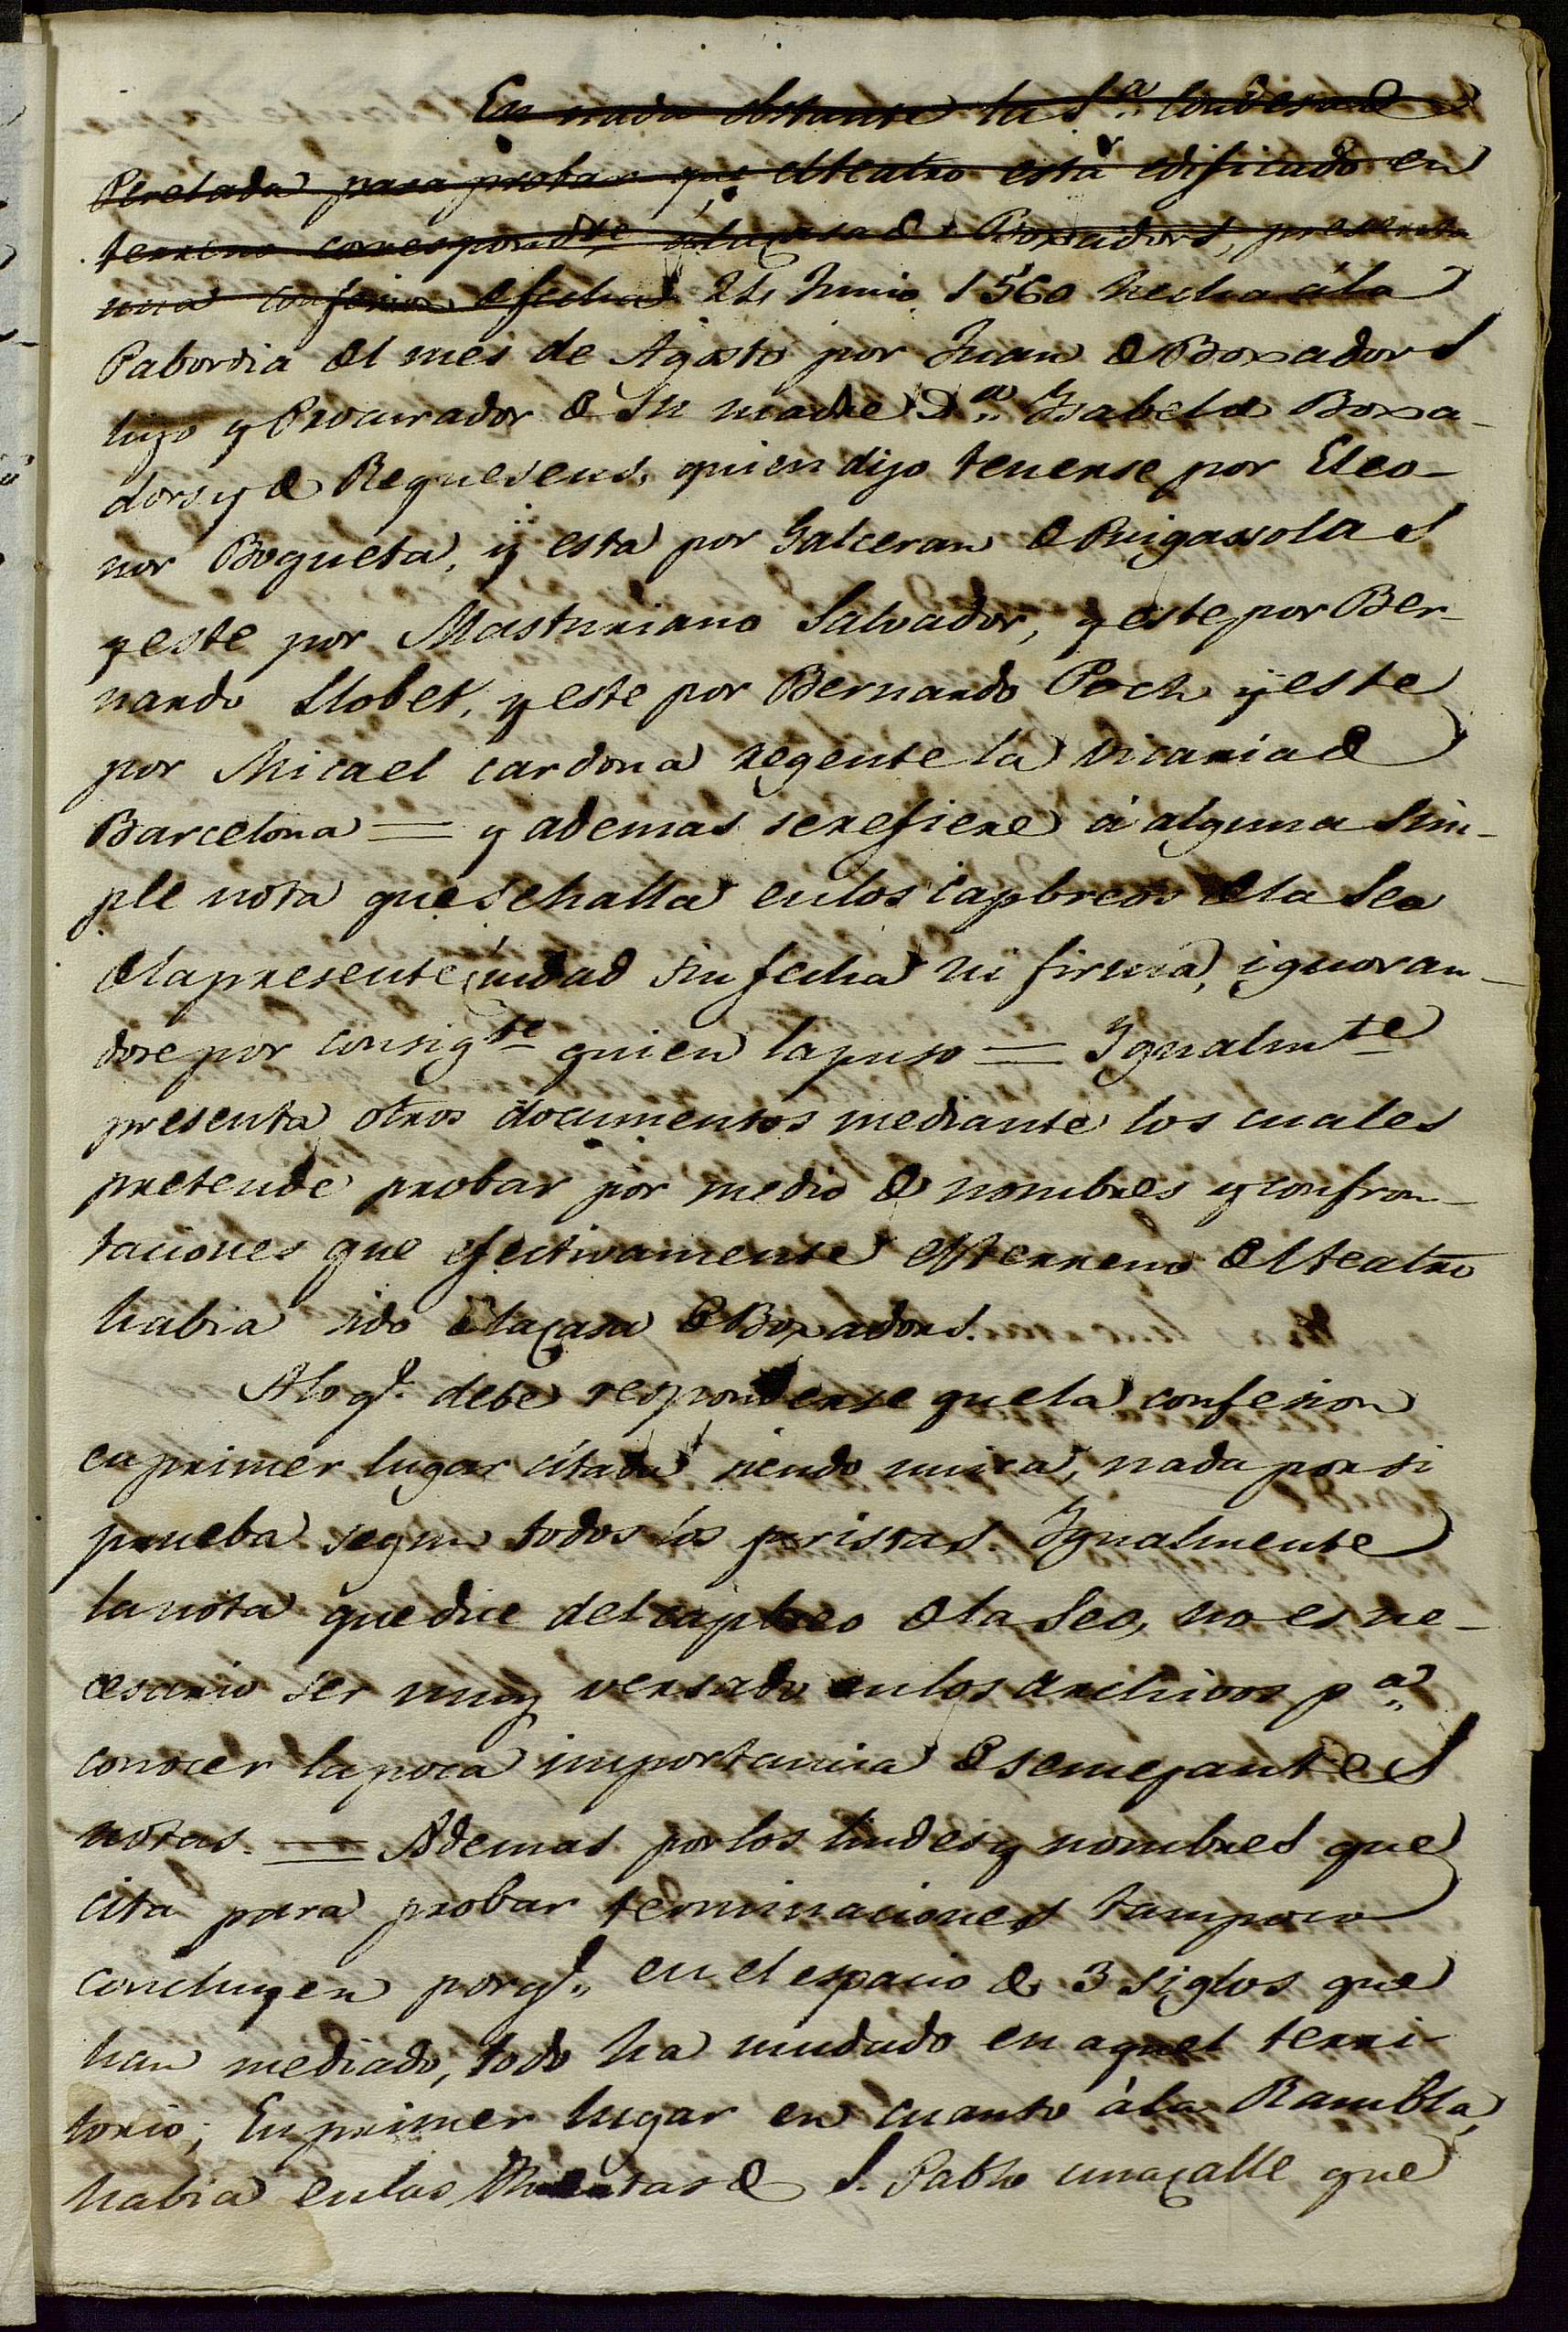 En nada obstante la S.ª Condesa de
Perelada para probar que el teatro está edificado en
terreno correspond.te a la casa de Boxadors, presenta
una confesion de fecha 21 Junio 1560 hecha á la
Pabordia del mes de Agosto por Juan de Boxadors
hijo y Procurador de Su madre D.ª Ysabel de Boxa-
dors y de Requesens, quien dijo tenerse por Eleo-
nor Boqueta, y esta por Galceran de Puigassolas
y este por Masturiano Salvador, y este por Ber-
nardo Llobet, y este por Bernardo Poch y este
por Micael cardona regente la vicaria de
Barcelona = y ademas se refiere á alguna Sim-
ple nota que se halla en los capbreos de la Seo
de la presente ciudad sin fecha ni firma, ignoran-
dose por consig.te quien la puso = Ygualm.te
presenta otros documentos mediante los cuales
pretende probar por medio de nombres y confron-
taciones que efectivamente el terreno del teatro
habia sido de la casa de Boxadors.
A lo q.e debe responderse que la confesion
en primer lugar citada siendo unica, nada por si
prueba segun todos los juristas. Ygualmente
la nota que dice del capbreo de la Seo, no es ne-
cesario ser muy versado en los archivos p.ª
conocer la poca importancia de semejantes
notas. = Ademas por los lindes y nombres que
cita para probar terminaciones tampoco
concluyen porq.e en el espacio de 3 siglos que
han mediado, todo ha mudado en aquel terri-
torio; En primer lugar en cuanto á la Rambla,
habia en las Huertas de S. Pablo una calle que